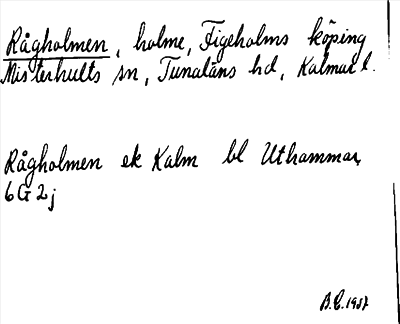 Rågholmen, holme, Figeholms köping
Misterhults sn, Tunaläns hd, Kalmar l.
Rågholmen ek Kalm bl Uthammar
6G2j
B.E. 1957